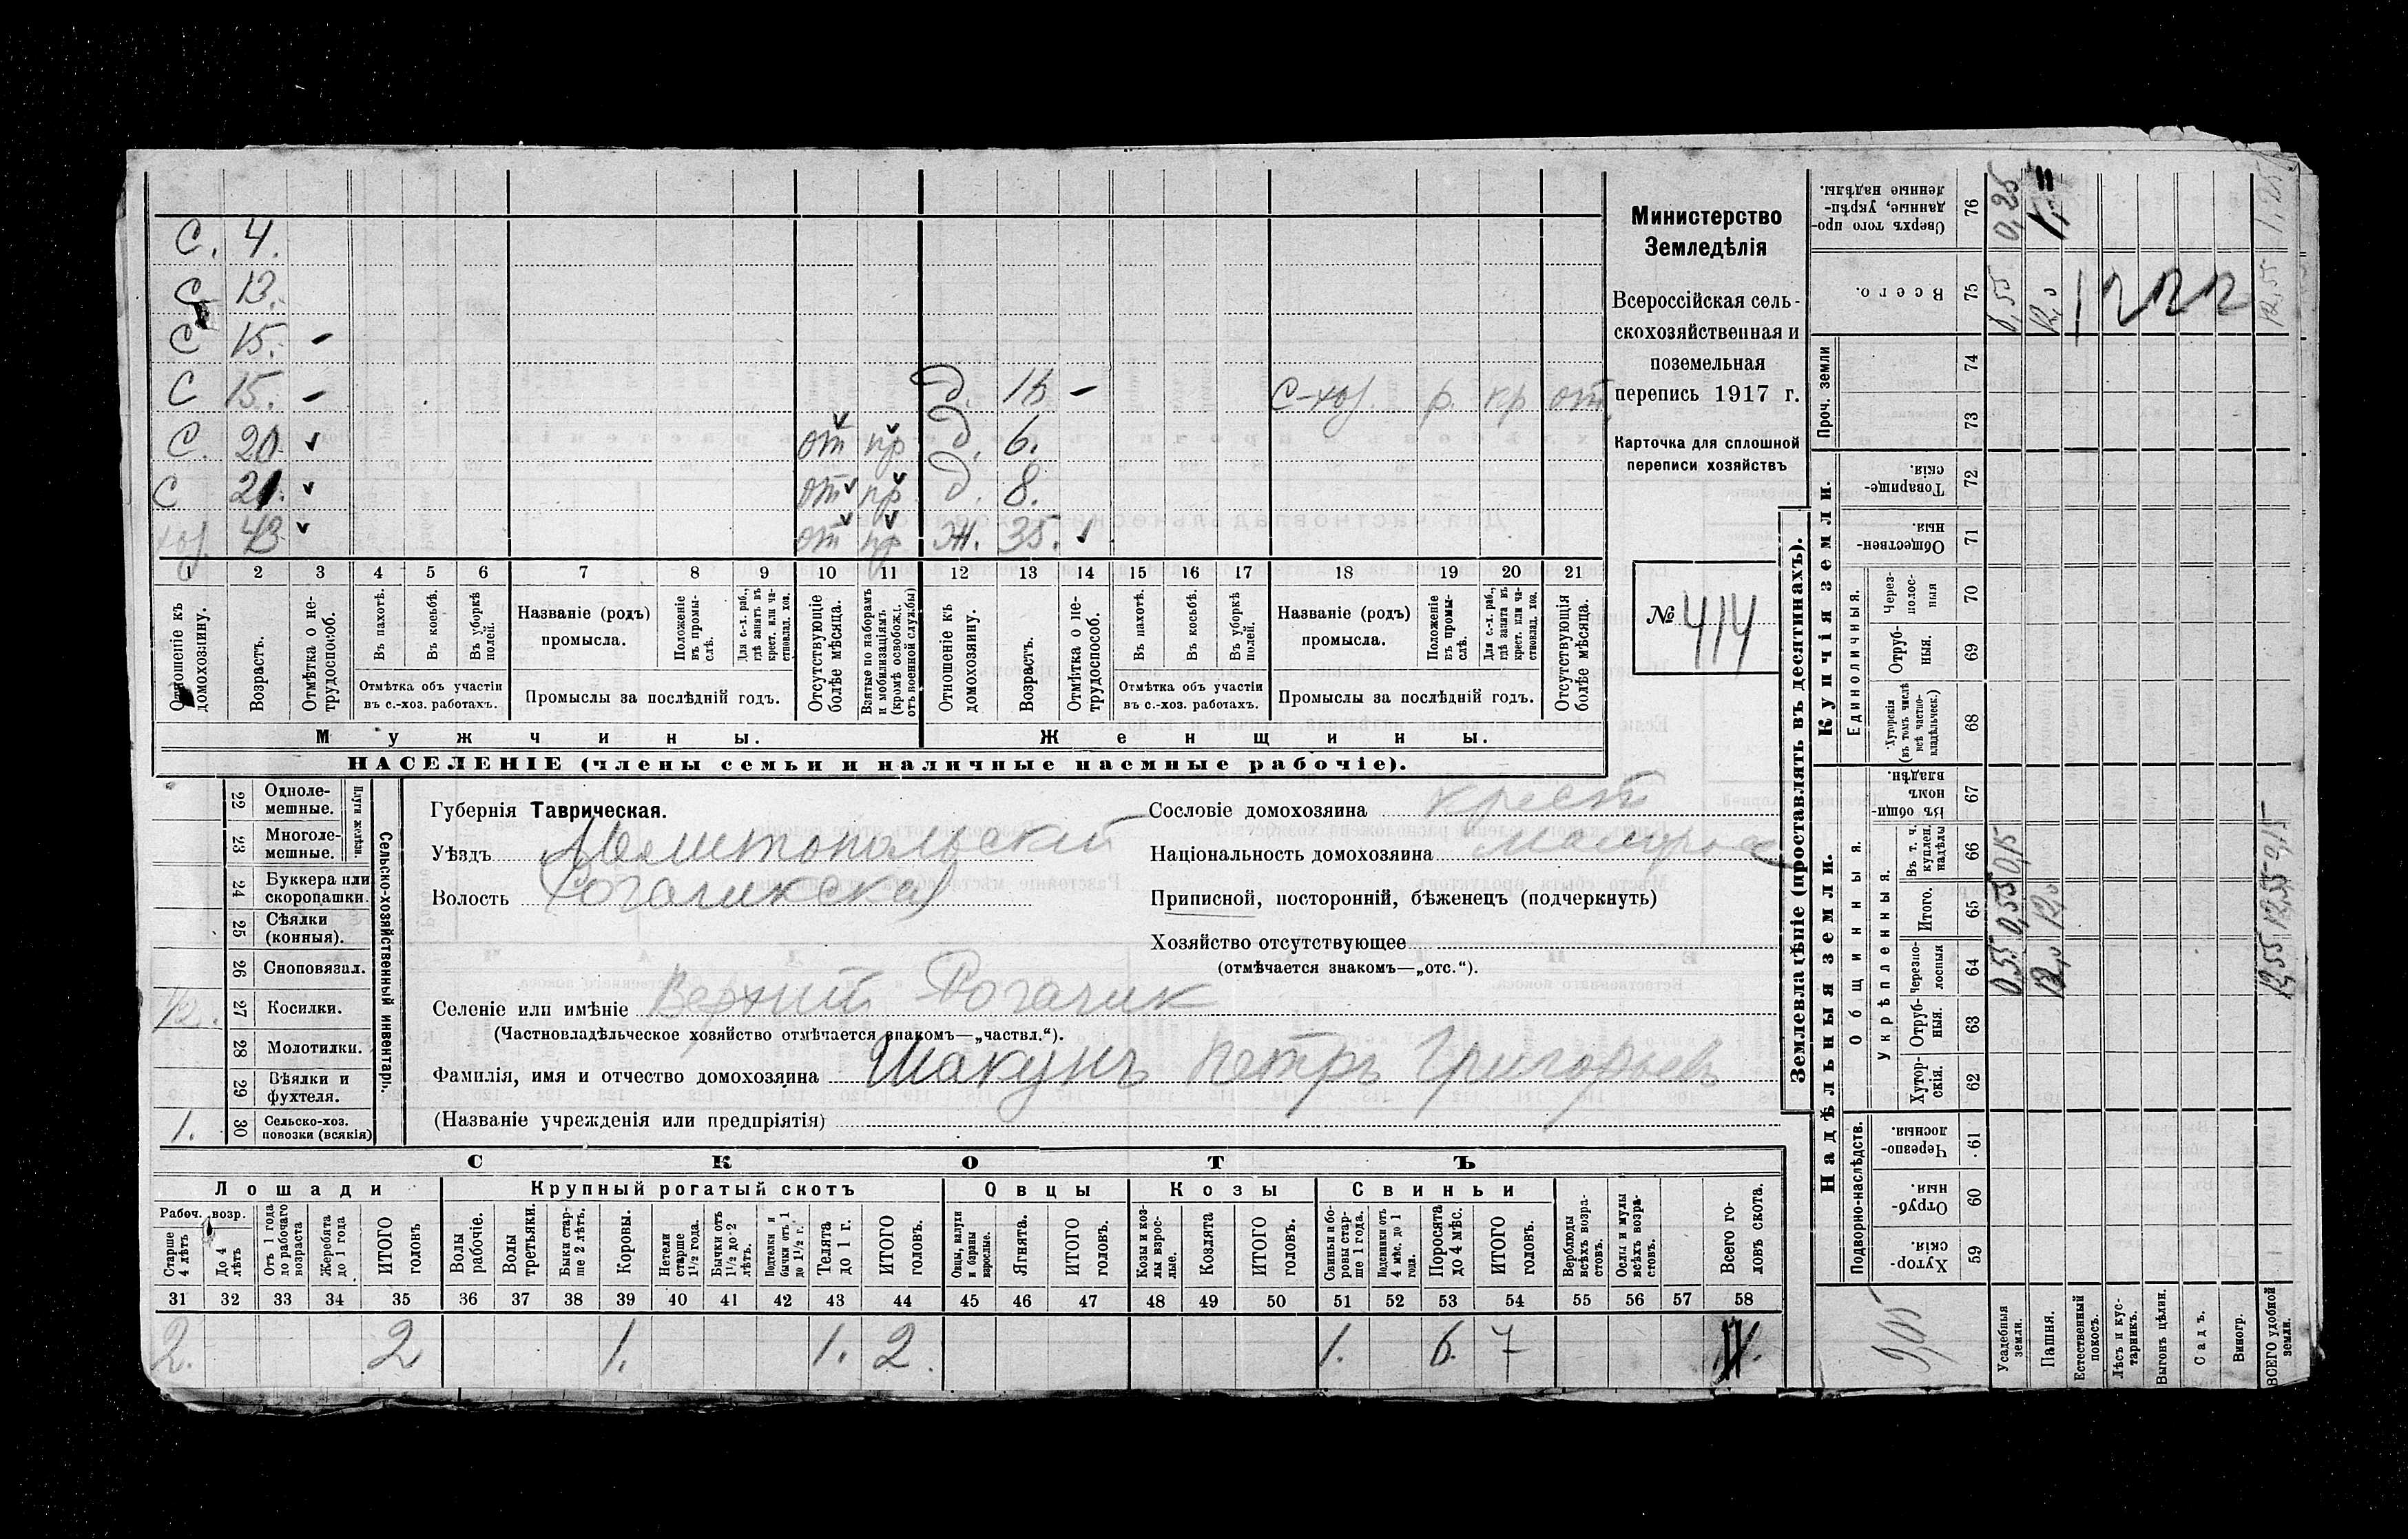 С. 4.
С 13.
С 15. –
С 15. – д. –
С-хоз. р. кр от.
С. 20 ✓ от пр д. 6.
С 21. ✓ от пр д. 8.
хоз. 43 ✓ от пр Ж. 35. ✓
1 2 3 4 5 6 7 8 9 10 11 12 13 14 15 16 17 18 19 20 21
Отношеніе къ домохозяину.
Возрастъ.
Отмѣтка о нетрудоспособ.
Въ пахотѣ.
Въ косьбѣ.
Въ уборкѣ полей.
Отмѣтка объ участіи
въ с.-хоз. работахъ.
Названіе (родъ)
промысла.
Положеніе въ промыслѣ.
Для с.-х. раб., гдѣ занятъ въ крест. или частновлад. хоз.
Промыслы за послѣдній годъ.
Отсутствующіе болѣе мѣсяца.
Взятые по наборамъ и мобилизаціямъ (кромѣ освобожд. отъ военной службы)
Отношеніе къ домохозяину.
Возрастъ.
Отмѣтка о нетрудоспособ.
Въ пахотѣ.
Въ косьбѣ.
Въ уборкѣ полей.
Отмѣтка объ участіи
въ с.-хоз. работахъ.
Названіе (родъ)
промысла.
Положеніе въ промыслѣ.
Для с.-х. раб., гдѣ занята въ крест. или частновлад. хоз.
Промыслы за послѣдній годъ.
Отсутствующія болѣе мѣсяца.
Мужчины.
Женщины.
НАСЕЛЕНІЕ (члены семьи и наличные наемные рабочіе).
Министерство
Земледѣлія
Всероссійская сель-
скохозяйственная и
поземельная
перепись 1917 г.
Карточка для сплошной
переписи хозяйствъ
№ 414
Сельско-хозяйственный инвентарь.
Плуги желѣзн.
22 Однолемешные.
23 Многолемешные.
24 Буккера или скоропашки.
25 Сѣялки (конныя).
26 Сноповязал.
1/2. 27 Косилки.
28 Молотилки.
29 Вѣялки и фухтеля.
1. 30 Сельско-хоз. повозки (всякія)
Губернія Таврическая.
Уѣздъ Мелитопольскій
Волость Рогачикская
Сословіе домохозяина крест
Національность домохозяина малорос
Приписной, посторонній, бѣженецъ (подчеркнуть)
Хозяйство отсутствующее
(отмѣчается знакомъ—„отс.“).
Селеніе или имѣніе Верхній Рогачик
(Частновладѣльческое хозяйство отмѣчается знакомъ—„частвл.“).
Фамилія, имя и отчество домохозяина Шакунъ Петръ Григорьевъ
(Названіе учрежденія или предпріятія)
СКОТЪ
Лошади
Крупный рогатый скотъ
Овцы
Козы
Свиньи
Рабоч. возр.
Старше 4 лѣтъ
До 4 лѣтъ
Отъ 1 года до рабочаго возраста
Жеребята до 1 года
ИТОГО головъ
Волы рабочіе.
Волы третьяки.
Быки старше 2 лѣтъ.
Коровы.
Нетели старше 1½ года.
Бычки отъ 1½ до 2 лѣтъ.
Подтелки и бычки отъ 1 до 1½ г.
Телята до 1 г.
ИТОГО головъ.
Овцы, валухи и бараны взрослые.
Ягнята.
ИТОГО головъ.
Козы и козлы взрослые.
Козлята
ИТОГО головъ.
Свиньи и боровы старше 1 года.
Подсвинки отъ 4 мѣс. до 1 года.
Поросята до 4 мѣс.
ИТОГО головъ.
Верблюды всѣхъ возрастовъ.
Ослы и мулы всѣхъ возрастовъ.
Всего головъ скота.
31 32 33 34 35 36 37 38 39 40 41 42 43 44 45 46 47 48 49 50 51 52 53 54 55 56 57 58
2. 2 1. 1. 2. 1. 6. 7 11.
Землевладѣніе (проставлять въ десятинахъ).
Надѣльныя земли.
Купчія земли.
Проч. земли
Подворно-наслѣдств.
Общинныя.
Укрѣпленныя.
Единоличныя.
Хуторскія. 59
Отрубныя. 60
Черезполосныя. 61
Хуторскія. 62
Отрубныя. 63
Черезполосныя 64
Итого. 65
Въ т. ч. куплен. надѣлы 66
Въ общинномъ владѣн. 67
Хуторскія (въ томъ числѣ всѣ частновладѣльческ.) 68
Отрубныя. 69
Черезполосныя 70
Общественныя. 71
Товарищескія. 72
73
74
Всего. 75
Сверхъ того проданные, укрѣпленные надѣлы. 76
Усадебныя земли. 0,55 0,55 0,15 0,25
Пашня. 12,0 12,0 12,0
Естественный покосъ.
Лѣсъ и кустарникъ.
Выгонъ цѣлин.
Садъ.
Виногр.
ВСЕГО удобной земли. 12,55 12,55 0,15 12,55 1,25